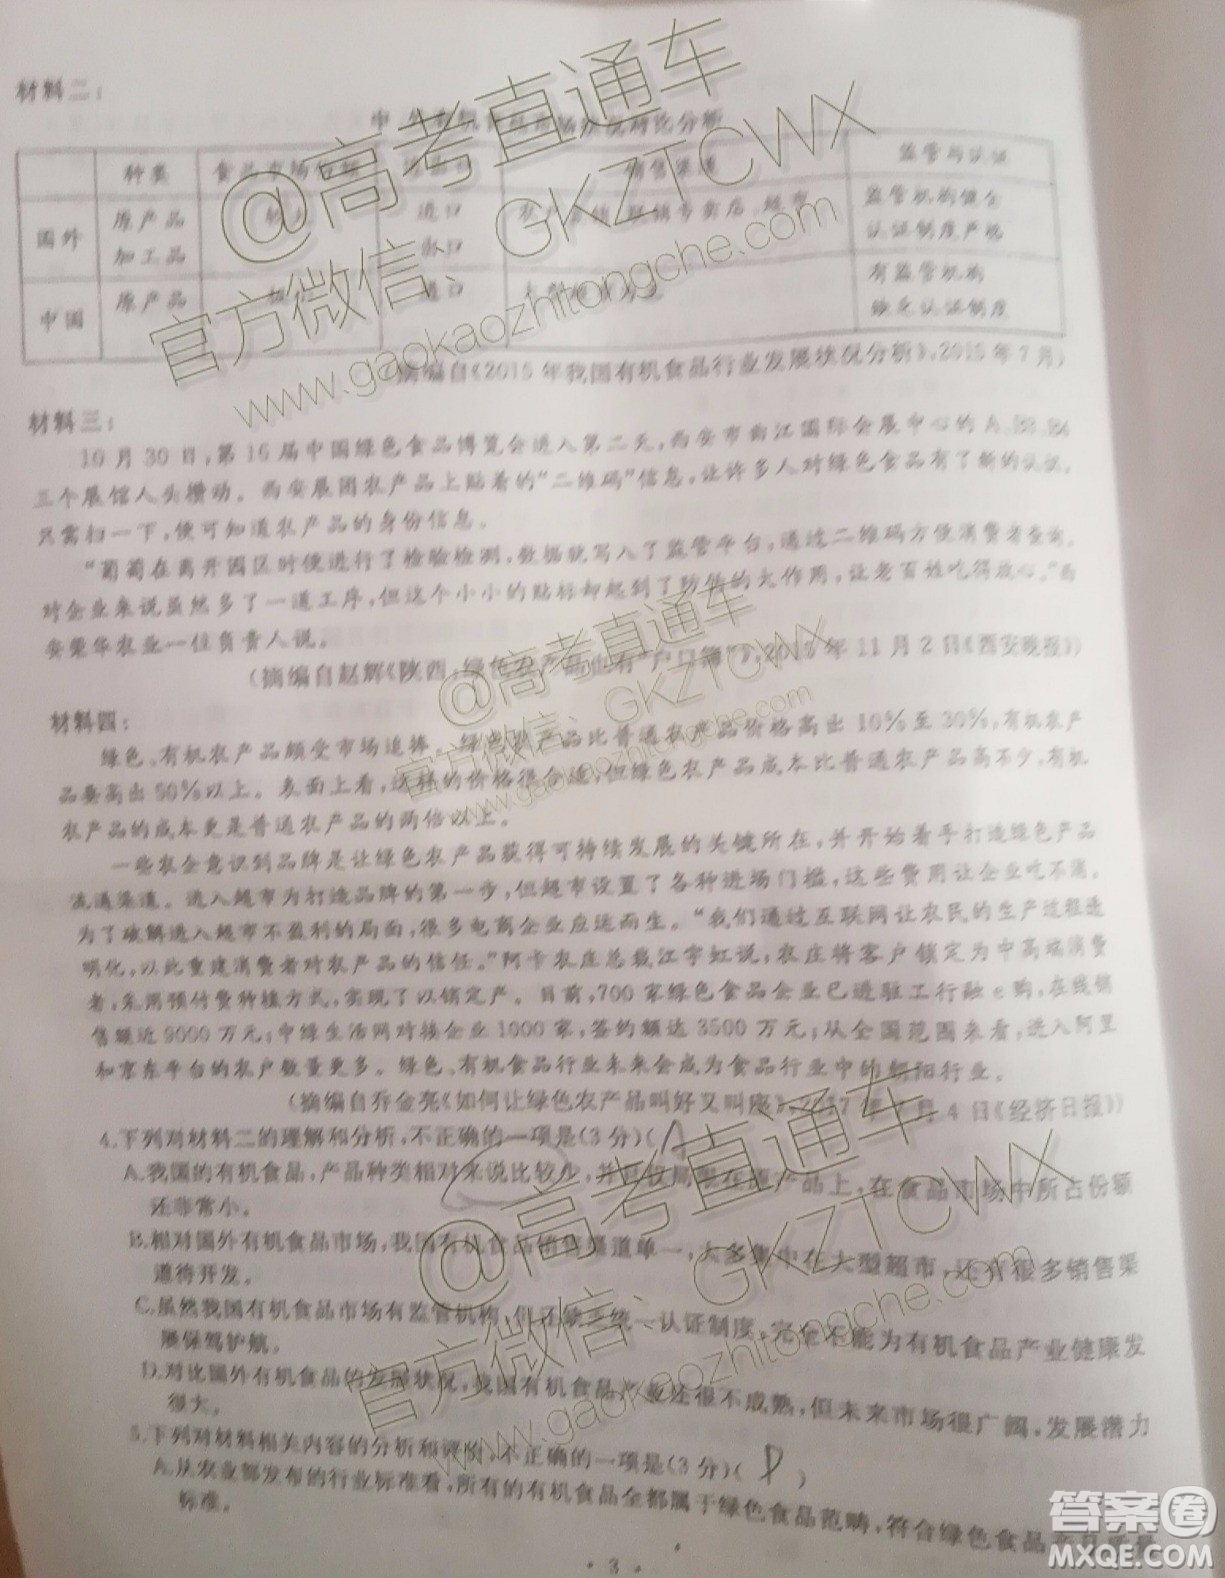 材料二：
中、外有机食品市场状况对比分析
种类 食品市场份额 销售渠道 监管与认证
国外 原产品 较大 进口 超市 监管机构健全
加工品 出口 认证制度严格
中国 原产品 进口 有监管机构
缺乏认证制度
（摘编自《2015年我国有机食品行业发展状况分析》，2015年7月）
材料三：
10月30日，第16届中国绿色食品博览会进入第二天，西安市曲江国际会展中心的A、B3、B4
三个展馆人头攒动。西安展团农产品上贴着的“二维码”信息，让许多人对绿色食品有了新的认识，
只需扫一下，便可知道农产品的身份信息。
“葡萄在离开园区时便进行了检验检测，数据就写入了监管平台，通过二维码方便消费者查询。
对企业来说虽然多了一道工序，但这个小小的贴标却起到了防伪的大作用，让老百姓吃得放心。”西
安荣华农业一位负责人说。
（摘编自赵辉《陕西：绿色农产品也有“户口簿”》，2015年11月2日《西安晚报》）
材料四：
绿色、有机农产品颇受市场追捧。绿色农产品比普通农产品价格高出10%至30%，有机农产
品要高出50%以上。表面上看，这样的价格很合适，但绿色农产品成本比普通农产品高不少，有机
农产品的成本更是普通农产品的两倍以上。
一些农企意识到品牌是让绿色农产品获得可持续发展的关键所在，并开始着手打造绿色产品
流通渠道。进入超市为打造品牌的第一步，但超市设置了各种进场门槛，这些费用让企业吃不消。
为了破解进入超市不盈利的局面，很多电商企业应运而生。“我们通过互联网让农民的生产过程透
明化，以此重建消费者对农产品的信任。”阿卡农庄总裁江宇虹说，农庄将客户锁定为中高端消费
者，采用预付费种植方式，实现了以销定产。目前，700家绿色食品企业已进驻工行融e购，在线销
售额近9000万元；中绿生活网对接企业1000家，签约额达3500万元；从全国范围来看，进入阿里
和京东平台的农户数量更多。绿色、有机食品行业未来会成为食品行业中的朝阳行业。
（摘编自乔金亮《如何让绿色农产品叫好又叫座》，2017年 月4日《经济日报》）
4.下列对材料二的理解和分析，不正确的一项是（3分）（A
A.我国的有机食品，产品种类相对来说比较少，并且仅局限在原产品上，在食品市场中所占份额
还非常小。
B.相对国外有机食品市场，我国有机食品销售渠道单一，大多集中在大型超市，还有很多销售渠
道待开发。
C.虽然我国有机食品市场有监管机构，但还缺乏统一认证制度，完全不能为有机食品产业健康发
展保驾护航。
D.对比国外有机食品的发展状况，我国有机食品产业还很不成熟，但未来市场很广阔，发展潜力
很大。
5.下列对材料相关内容的分析和评价，不正确的一项是（3分）（D）
A.从农业部发布的行业标准看，所有的有机食品全都属于绿色食品范畴，符合绿色食品产品质量
标准。
·3·
@高考直通车
官方微信：GKZTCWX
www.gaokaozhitongche.com
@高考直通车
官方微信：GKZTCWX
www.gaokaozhitongche.com
@高考直通车
官方微信：GKZTCWX
www.gaokaozhitongche.com
答案圈
MXQE.COM